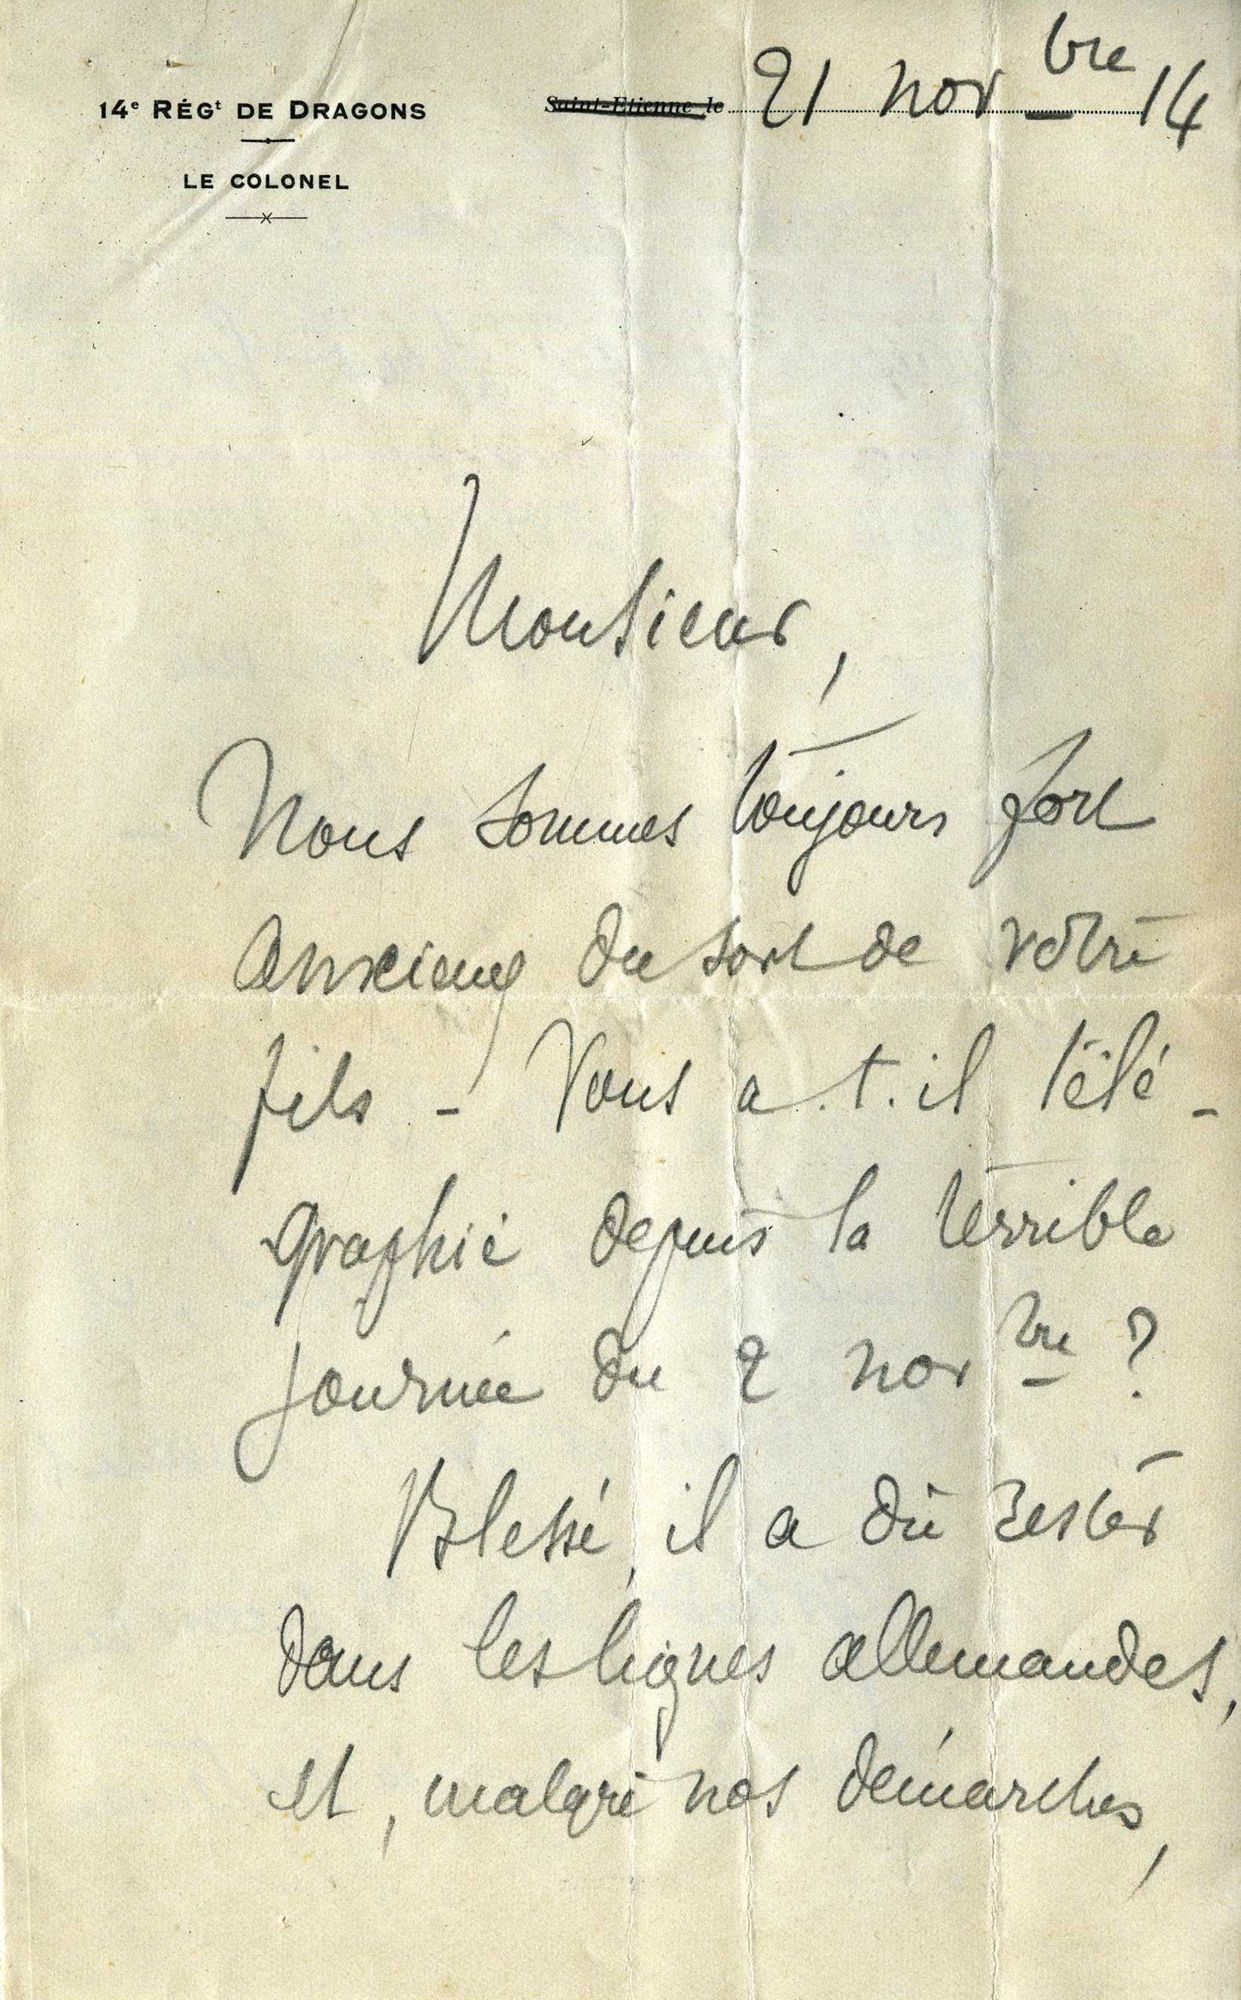 14e RÉGt DE DRAGONS
LE COLONEL
Saint-Etienne, le 21 novbre 14
Monsieur,
Nous sommes toujours fort
anxieux du sort de votre
fils - Vous a.t.il télé-
graphié depuis la terrible
journée du 2 novbre ?
Blessé, il a dû rester
dans les lignes allemandes,
et, malgré nos démarches,